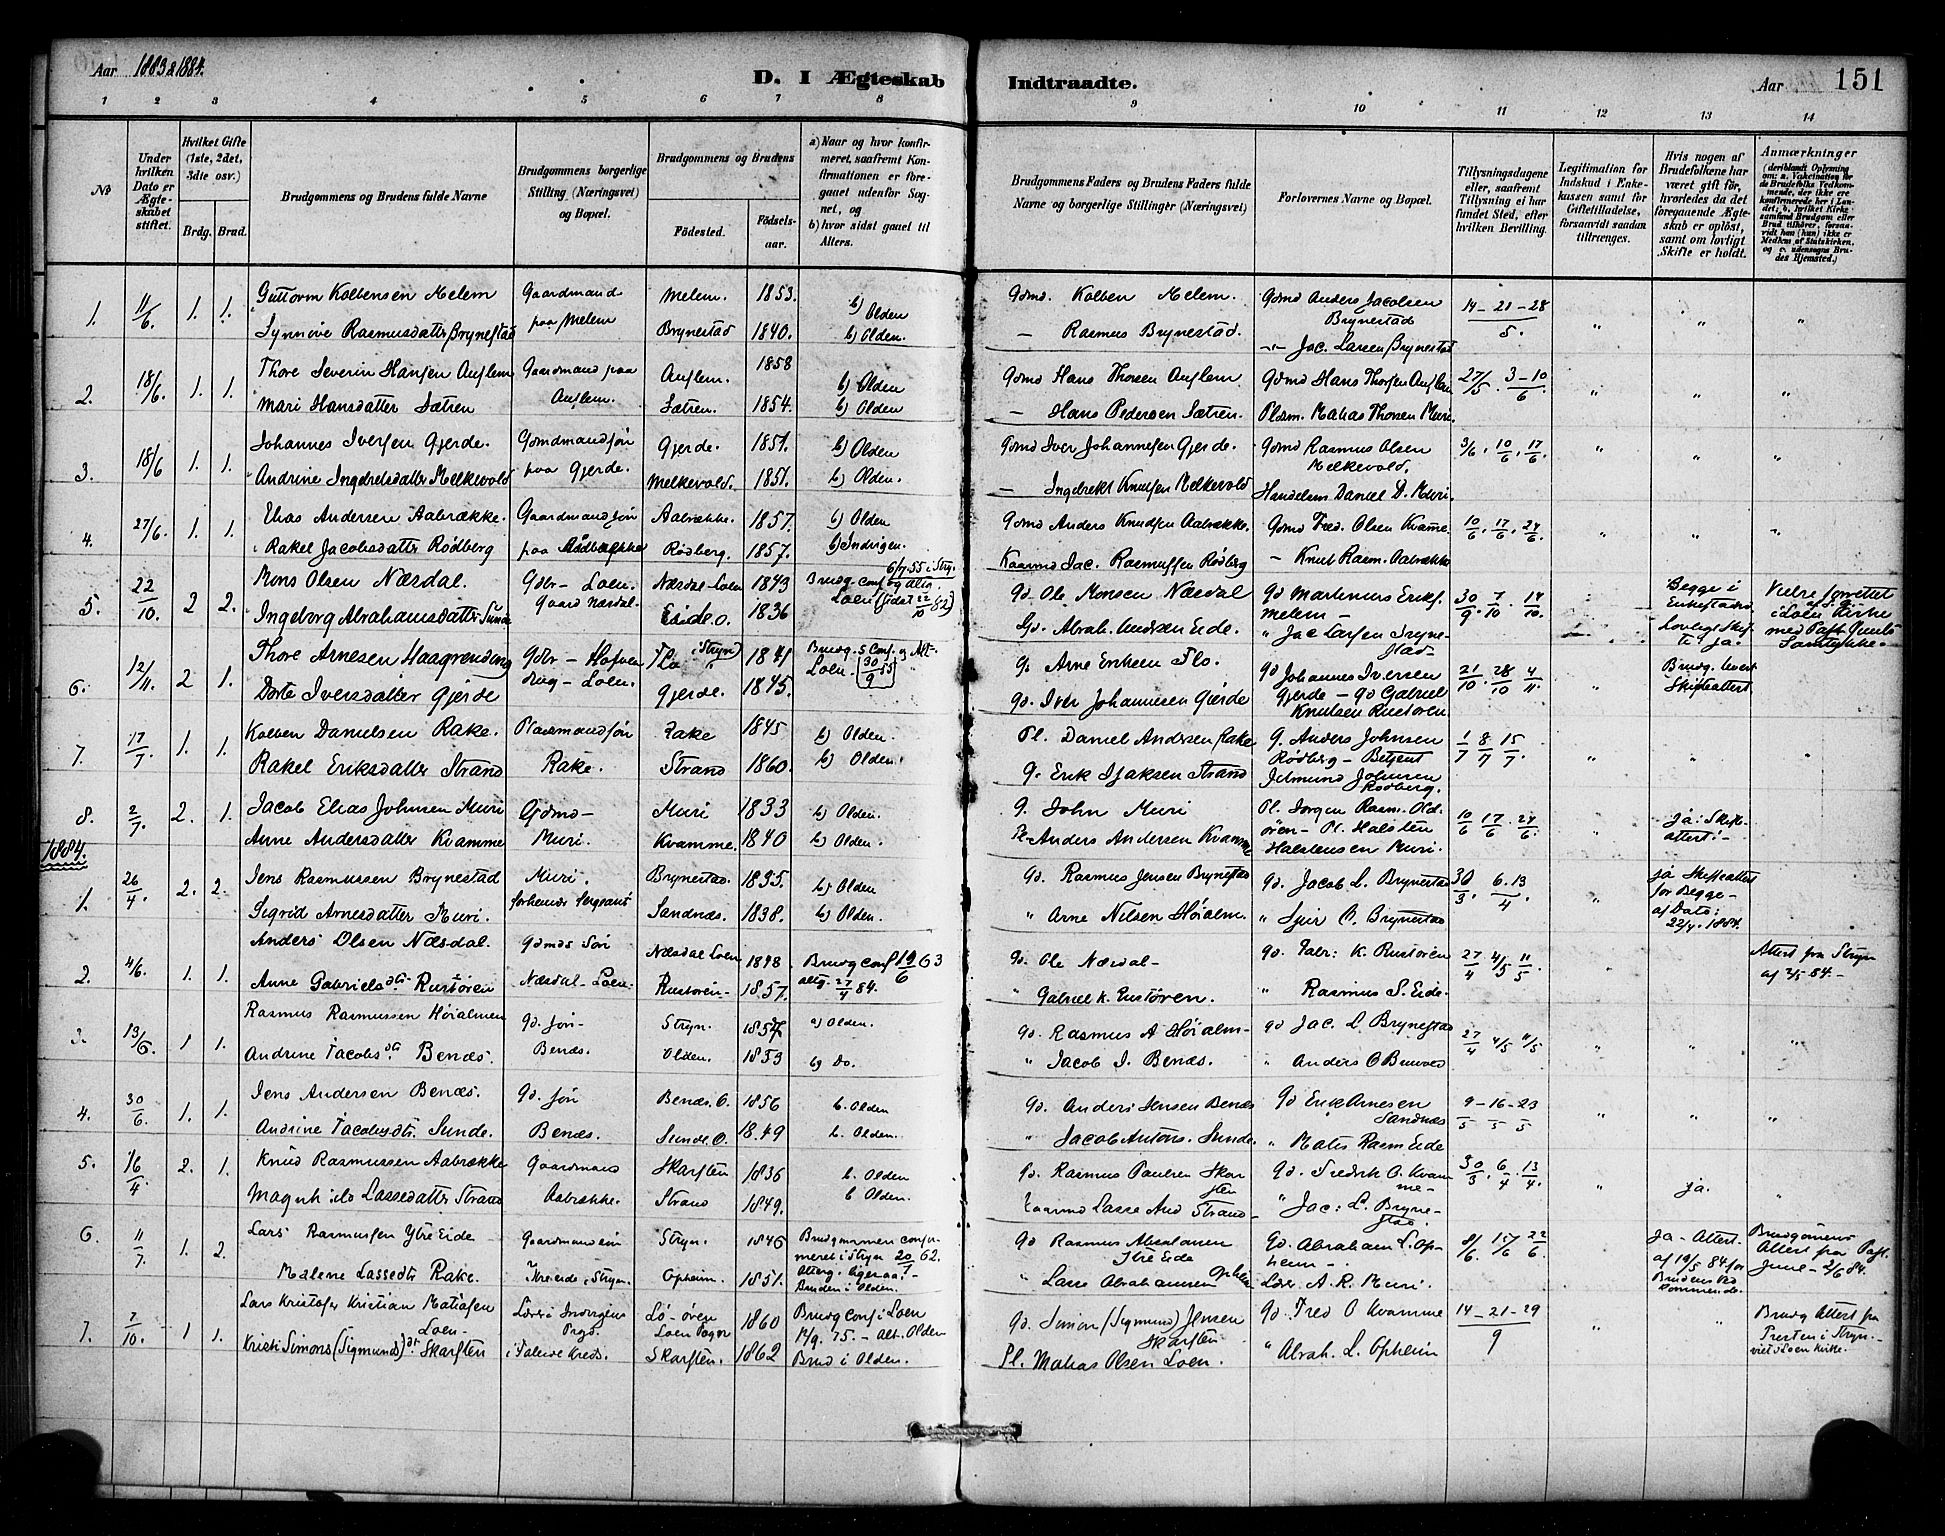 Aar 1883 & 1884.
D. I Ægteskab Indtraadte.
Aar 151
1 2 3 4 5 6 7 8 9 10 11 12 13 14
No
Under hvilken Dato er Ægteskabet stiftet.
Hvilket Gifte (1ste, 2det, 3die osv.)
Brdg. Brud.
Brudgommens og Brudens fulde Navne
Brudgommens borgerlige Stilling (Næringsvei) og Bopæl.
Brudgommens og Brudens
Fødested. Fødselsaar.
a) Naar og hvor konfirmeret, saafremt Konfirmationen er foregaaet udenfor Sognet, og
b) hvor sidst gaaet til Alters.
Brudgommens Faders og Brudens Faders fulde Navne og borgerlige Stillinger (Næringsvei)
Forlovernes Navne og Bopæl.
Tillysningsdagene eller, saafremt Tillysning ei har fundet Sted, efter hvilken Bevilling.
Legitimation for Indskud i Enkekassen samt for Giftetilladelse, forsaavidt saadan tiltrænges.
Hvis nogen af Brudefolkene har været gift før, hvorledes da det foregaaende Ægteskab er opløst, samt om lovligt Skifte er holdt.
Anmærkninger
(deriblandt Oplysning om: a. Vakcination for de Brudefolks Vedkommende, der ikke ere konfirmerede her i Landet; b. hvilket Kirkesamfund Brudgom eller Brud tilhører, forsaavidt han (hun) ikke er Medlem af Statskirken, og c. udensogns Brudes Hjemsted.)
1. 11/6 1. 1. Guttorm Kolbensen Melem Gaardmand Melem. 1853. b) Olden Gdmd. Kolben Melem. Gdmd Anders Jacobsen Brynestad 14 - 21 - 28
Synnøve Rasmusdatter Brynestad paa Melem Brynestad 1840. b) Olden. — Rasmus Brynestad. — Jac. Larsen Brynestad 5. " " "
2. 18/6. 1. 1. Thore Severin Hansen Auflem Gaardmand paa Auflem. 1858 b) Olden Gdmd Hans Thorsen Auflem Gdmd Hans Thorsen Auflem 27/5. 3-10/6
Mari Hansdatter Sætren Auflem. Sætren. 1854. b) Olden — Hans Pedersen Sætren. Pldsm. Mathias Thorsen Muri. " " "
3. 18/6 1. 1. Johannes Iversen Gjerde. Gdmdmandsøn Gjerde. 1851. b) Olden Gdmd Iver Johannesen Gjerde Gdmd Rasmus Olsen Melkevold. 3/6. 10/6. 17/6.
Andrine Ingebretsdatter Melkevold paa Gjerde. Melkevold. 1851. b) Olden. — Ingebrekt Knutsen Melkevold Handelsm. Daniel D. Muri. " " "
4. 27/6. 1. 1. Elias Andersen Aabrække. Gaardmandsøn Aabrække. 1857. b) Olden Gdmd Anders Knudsen Aabrække. Gdmd Fred. Olsen Kvamme. 10/6. 17/6. 24/6.
Rakel Jacobsdatter Rødberg paa Aabrække Rødberg. 1857. b) Indvigen. Kaarmd Jac. Rasmussen Rødberg — Knut Rasm. Aabrække " " "
5. 22/10. 2 2. Mons Olsen Næsdal. Gdbr - Loen. Næsdal-Loen 1843 Brudg. Conf. 6/7 55 i Stryn. og altg. Gd. Ole Monsen Næsdal Gd Martenius Eriks. Melem - 30/9. 7/10. 14/10. Begge i Enkestand. Lovligt Skifte: ja.
Ingeborg Abrahamsdatter Sunde Gaard Næsdal. Eide. O. 1836 Loen (sidst 22/10 82) Gd. Abrah. Andersen Eide. " Jac Larsen Brynestad - Vielse forrettet i Loen Kirke med Samtykke.
6. 12/11. 2 1. Thore Arnesen Haagrending Gdbr - Flo (Stryn) 1841 Brudg. Conf. og Alt. G. Arne Eriksen Flo Gd Johannes Iversen Gjerde - Gd Gabriel Knutsen Rustøren 21/10. 28/10 4/11. Brudg. Skifteattest
Dorte Iversdatter Gjerde Loen. Gjerde. 1845. Loen. [30/9 55] Gd. Iver Johannesen Gjerde
7. 17/7 1. 1. Kolben Danielsen Rake. Pladsmandsøn Rake 1845 b) Olden. Pl. Daniel Andersen Rake G. Anders Johnsen Rødberg - Betjent 1/7 8/7 15/7.
Rakel Eriksdatter Strand Rake. Strand 1860. b) Olden. G. Erik Isaksen Strand Johnsen Rødberg. " " "
8. 2/7. 2. 1. Jacob Elias Johnsen Muri Gdmd- Muri 1833 b) Olden. G. John Muri Pl. Jørgen Rasm. Oldøren - Pl. Halsten Halstensen Muri. 10/6 17/6. 24/6. Ja: Skifteattest -
Anne Andersdatter Kvamme Muri. Kvamme. 1840 b) Olden. Pl. Anders Andersen Kvamme
1884.
1. 26/4. 2. 2. Jens Rasmussen Brynestad Muri. Brynestad. 1835. b) Olden Gd. Rasmus Jensen Brynestad Gd. Jacob L. Brynestad 30/3. 6. 13/4. ja Skifteattest for Begge - af Dato: 22/4. 1884.
Sigrid Arnesdatter Muri. forhenv. Sergeant Sandnæs. 1838. b) Olden. " Arne Nilsen Høialm " O. Brynestad
2. 4/6. 1. 1. Anders Olsen Næsdal. Gdmds Søn Næsdal Loen 1848 Brudg conf 63 Gd. Ole Næsdal - Gd. Gabr: K. Rustøren 27/4 4/5 11/5 Attest fra Stryn af 2/5 84. -
Anne Gabrielsdtr Rustøren Næsdal - Loen. Rustøren - 1857. altg. 27/4 84. " Gabriel K. Rustøren. " Rasmus S. Eide.
3. 13/6. 1 1. Rasmus Rasmussen Høialmen Gd. Søn - Stryn. a) Olden. Gd. Rasmus A Høialm - Gd Jac. L. Brynestad 27/4 4/5 11/5
Andrine Jacobsdtr Benæs. Benæs. Olden. 1853 b) Do. " Jacob J. Benæs. " Anders O " " "
4. 30/6. 1. 1. Jens Andersen Benæs. Gd. Søn Benæs. O. 1856 b. Olden Gd. Anders Jensen Benæs Gd Erik Arnesen Sandnæs 9 - 16 - 23
Andrine Jacobsdtr. Sunde. Benæs. Sunde. O. 1849 b. Olden. " Jacob Antons. Sunde. " Mats Rasm Eide 5 5 5 " " "
5. 16/4. 2. 1. Knud Rasmussen Aabrække Gaardmand Skarsten 1836 b. Olden Gd. Rasmus Paulsen Skarsten Gd. Fredrik O. Kvamme - 30/3 6/4 13/4. ja.
Magnhilda Lassedatter Strand Aabrække. Strand 1849. b Olden. Kaarmd Lasse And Strand - " Jac: L. Brynestad. "
6. 11/7. 1. 2. Lars Rasmussen Ytre Eide Gaardmandssøn Stryn. 1846 Brudgommen confirmeret i Stryn 20/7 62. Altrg. i ligesaa. - Gd Rasmus Absalonsen Ytre Eide Gd. Abraham L. Opheim - 8/6. 15/6 22/6. ja - Attest. af 19/5 84. for Brudens Vedkommende.
Malene Lassedtr Rake. Ytreeide i Stryn. Opheim. 1851. Bruden i Olden. " Lasse Abrahamsen Opheim Lærer A. R. Muri. Brudgommens Attest fra Past. June - 2/6 84.
7. 7/10. 1 1. Lars Kristofer Kristian Matiasen Loen - Lærer i Indvigens Prgd. Lo-øren Loen Sogn 1860 Brudg Conf i Loen 12/9. 75. - Alt. Olden Gd. Simon (Sigmund) Jensen Skarsten Gd. Fred O Kvamme 14 - 21 - 29
Kristi Simons (Sigmunds) dtr Skarsten i Faleide Kreds. Skarsten. 1862 Brud i Olden. Pl. Matias Olsen Loen. " Abrah. L. Opheim 9 Brudg Attest fra Presten i Stryn. - viet i Loen Kirke.